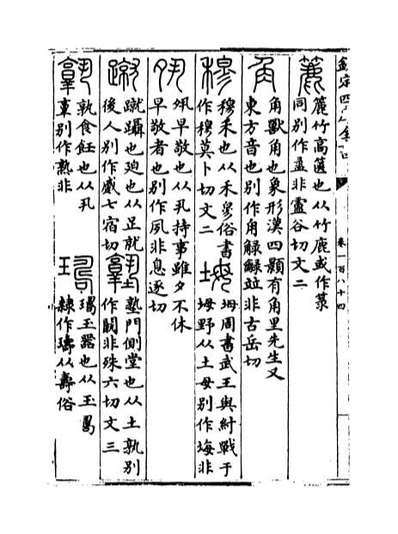 欽定四庫全書
卷一百八十四
簏 簏竹高篋也从竹鹿或作箓
同別作盝非盧谷切文二
角 角獸角也象形漢四顥有角里先生又
東方音也別作甪竝非古岳切
穆 穆禾也从禾㣎俗書
作穆莫卜切文二
坶 坶周書武王與紂戰于
坶野从土母別作非
夙 夙早敬也从丮持事雖夕不休
早敬者也別作夙非息逐切
蹴 蹴躡也从足就
後人別作蹙七宿切
塾 塾門側堂也从土孰別
作非殊六切文三
孰 孰食飪也从丮
別作熟非
璹 玉器也从玉
隸作璹从壽俗